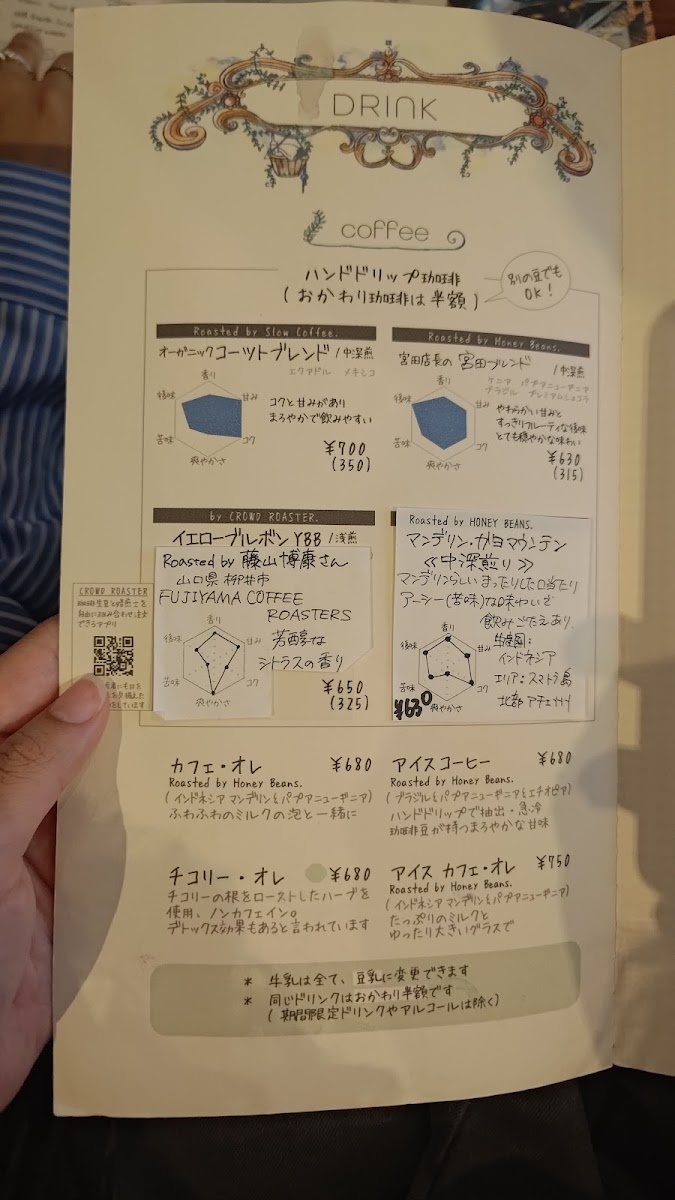 DRINK
coffee
ハンドドリップ珈琲
(おかわり珈琲は半額)
別の豆でも
OK!
Roasted by Slow Coffee.
オーガニックコーツトブレンド/中深煎
エクアドル メキシコ
香り
甘み
コク
爽やかさ
苦味
後味
コクと甘みがあり
まろやかで飲みやすい
¥700
(350)
Roasted by Honey Beans.
宮田店長の宮田ブレンド/中深煎
ケニア パプアニューギニア
ブラジル プレミアムショコラ
香り
甘み
コク
爽やかさ
苦味
後味
やわらかい甘みと
すっきりフルーティな後味
とても穏やかな味わい
¥630
(315)
by CROWD ROASTER.
イエローブルボンYBB/浅煎
Roasted by 藤山博康さん
山口県柳井市
FUJIYAMA COFFEE
ROASTERS
香り
甘み
コク
爽やかさ
苦味
後味
芳醇な
シトラスの香り
¥650
(325)
Roasted by HONEY BEANS.
マンデリン・ガヨマウンテン
≪中深煎り≫
マンデリンらしいまったりした口当たり
アーシー(苦味)な味わいで
飲みごたえあり
香り
甘み
コク
爽やかさ
苦味
後味
生産国:
インドネシア
エリア:スマトラ島
北部アチェ州
¥630
CROWD ROASTER
珈琲生豆と焙煎士を
自由に組み合わせ注文
できるアプリ
カフェ・オレ ¥680
Roasted by Honey Beans.
(インドネシアマンデリンとパプアニューギニア)
ふわふわのミルクの泡と一緒に
アイスコーヒー ¥680
Roasted by Honey Beans.
(ブラジルとパプアニューギニアとエチオピア)
ハンドドリップで抽出・急冷
珈琲豆が持つまろやかな甘味
チコリー・オレ ¥680
チコリーの根をローストしたハーブを
使用、ノンカフェイン。
デトックス効果もあると言われています
アイス カフェ・オレ ¥750
Roasted by Honey Beans.
(インドネシアマンデリンとパプアニューギニア)
たっぷりのミルクと
ゆったり大きいグラスで
* 牛乳は全て、豆乳に変更できます
* 同じドリンクはおかわり半額です
(期間限定ドリンクやアルコールは除く)